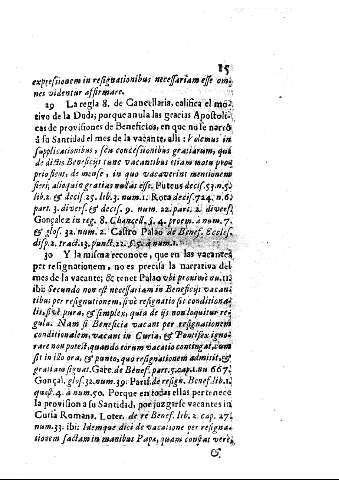 15
expressionem in resignationibus necessariam esse om-
nes videntur affirmare.
29 La regla 8. de Cancellaria, califica el mo-
tivo de la Duda, porque anula las gracias Apostoli-
cas de provisiones de Beneficios, en que no se narrò
à su Santidad el mes de la vacante, alli: Volumus in
supplicationibus, seu concessionibus gratiarum, quæ
de dictis Beneficijs tunc vacantibus etiam motu pro-
prio fient, de mense, in quo vacaverint mentionem
fieri, alioquin gratias nullas esse. Puteus decis. 53. n. 5.
lib. 2. & decis. 25. lib. 3. num. 1. Rota decis. 724. n. 6.
part. 3. divers. & decis. 9. num. 22. part. 2. divers.
Gonçalez in reg. 8. Chancell. §. 4. proem. à num. 7.
& glos. 32. num. 2. Castro Palao de Benef. Eccles.
disp. 2. tract. 13. punct. 22. §. 5. à num. 1.
30 Y la misma reconoce, que en las vacantes
per resignationem, no es precisa la narrativa del
mes de la vacante; & tenet Palao ubi proximè nu. 11.
ibi: Secundo non est necessariam in Beneficijs vacan-
tibus per resignationem, sivè resignatio sit conditiona-
lis, sivè pura, & simplex, quia de ijs non loquitur re-
gula. Nam si Beneficia vacant per resignationem
conditionalem, vacant in Curia, & Pontifex igno-
rare non potest, quando eorum vacatio contingat, cum
sit in illo ora, & puncto, quo resignationem admitit, &
gratiam signat. Garc. de Benef. part. 5. cap. 1. nu 667.
Gonçal. glos. 32. num. 39: Paris. de resign. Benef. lib. 1.
quæst. 4. à num. 50. Porque en todas ellas pertenece
la provision à su Santidad, por juzgarse vacantes in
Curia Romana. Loter. de re Benef. lib. 2. cap. 27.
num. 33. ibi: Idemque dici de vacatione per resigna-
tionem factam in manibus Papæ, quam constat verè,
&